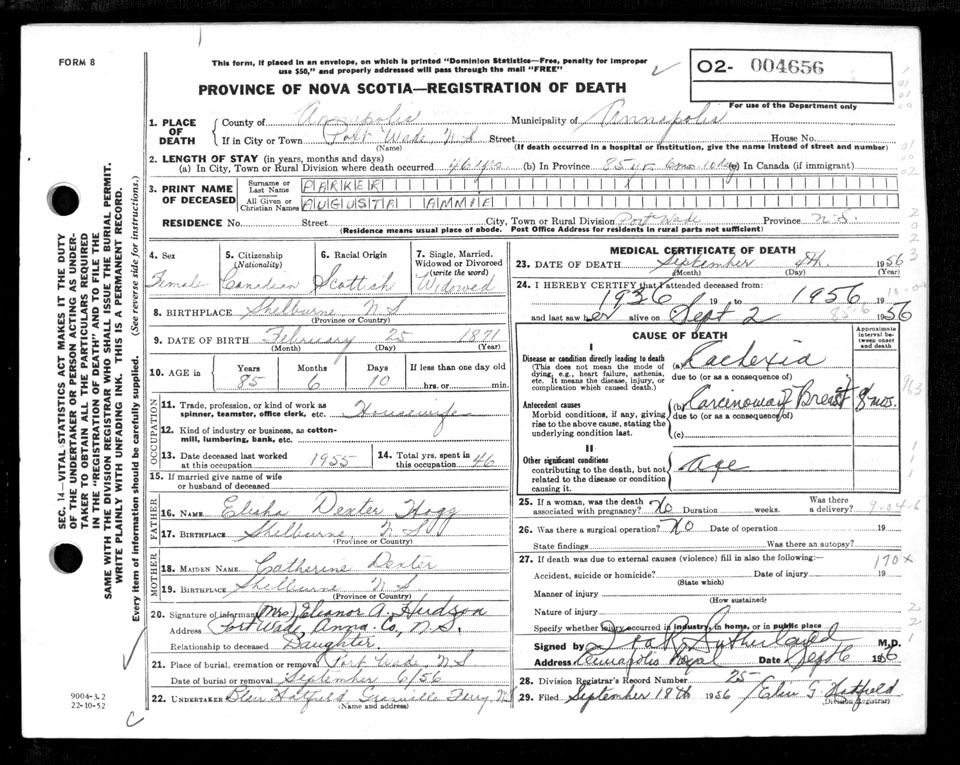 FORM 8
This form, if placed in an envelope, on which is printed "Dominion Statistics—Free, penalty for improper
use $50," and properly addressed will pass through the mail "FREE"
O2- 004656
PROVINCE OF NOVA SCOTIA—REGISTRATION OF DEATH
For use of the Department only
1. PLACE OF DEATH County of Annapolis Municipality of Annapolis
If in City or Town Port Wade, N.S Street House No.
(Name) (If death occurred in a hospital or Institution, give the name instead of street and number)
2. LENGTH OF STAY (in years, months and days)
(a) In City, Town or Rural Division where death occurred 46 yrs (b) In Province 85 yr 6 mos 10 day (c) In Canada (if immigrant)
3. PRINT NAME OF DECEASED
Surname or Last Name PARKER
All Given or Christian Names AUGUSTA AMMIE
RESIDENCE No. Street City, Town or Rural Division Port Wade Province N.S.
(Residence means usual place of abode. Post Office Address for residents in rural parts not sufficient)
SEC. 14—VITAL STATISTICS ACT MAKES IT THE DUTY
OF THE UNDERTAKER OR PERSON ACTING AS UNDER-
TAKER TO OBTAIN ALL THE PARTICULARS REQUIRED
IN THE "REGISTRATION OF DEATH" AND TO FILE THE
SAME WITH THE DIVISION REGISTRAR WHO SHALL ISSUE THE BURIAL PERMIT.
WRITE PLAINLY WITH UNFADING INK. THIS IS A PERMANENT RECORD.
Every item of information should be carefully supplied. (See reverse side for instructions.)
4. Sex
Female
5. Citizenship
(Nationality)
Canadian
6. Racial Origin
Scottish
7. Single, Married,
Widowed or Divorced
(write the word)
Widowed
8. BIRTHPLACE Shelburne N S
(Province or Country)
9. DATE OF BIRTH February 25 1871
(Month) (Day) (Year)
10. AGE in Years Months Days If less than one day old
85 6 10 hrs. or min.
OCCUPATION
11. Trade, profession, or kind of work as
spinner, teamster, office clerk, etc. Housewife
12. Kind of industry or business, as cotton-
mill, lumbering, bank, etc.
13. Date deceased last worked
at this occupation 1955
14. Total yrs. spent in
this occupation 46
15. If married give name of wife
or husband of deceased
FATHER
16. NAME Elisha Dexter Hogg
17. BIRTHPLACE Shelburne N S
(Province or Country)
MOTHER
18. MAIDEN NAME Catherine Dexter
19. BIRTHPLACE Shelburne N S
(Province or Country)
20. Signature of informant Mrs Eleanor A. Hudson
Address Port Wade, Anna. Co., N.S.
Relationship to deceased Daughter.
21. Place of burial, cremation or removal Port Wade, N.S
Date of burial or removal September 6/56
22. UNDERTAKER Blair Hatfield Granville Ferry, N.S
(Name and address)
9004-3.2
22-10-52
MEDICAL CERTIFICATE OF DEATH
23. DATE OF DEATH September 4th. 1956
(Month) (Day) (Year)
24. I HEREBY CERTIFY that I attended deceased from:
1936 19 to 1956 19
and last saw her alive on Sept 2 1956
CAUSE OF DEATH
Approximate
interval be-
tween onset
and death
I
Disease or condition directly leading to death
(This does not mean the mode of
dying, e.g., heart failure, asthenia,
etc. It means the disease, injury, or
complication which caused death.)
(a) Cachexia
due to (or as a consequence of)
Antecedent causes
Morbid conditions, if any, giving
rise to the above cause, stating the
underlying condition last.
(b) Carcinoma of Breast 8 mos.
due to (or as a consequence of)
(c)
II
Other significant conditions
contributing to the death, but not
related to the disease or condition
causing it.
Age
25. If a woman, was the death
associated with pregnancy? No Duration weeks. Was there
a delivery?
26. Was there a surgical operation? NO Date of operation 19
State findings Was there an autopsy?
27. If death was due to external causes (violence) fill in also the following:
170X
Accident, suicide or homicide? Date of injury 19
(State which)
Manner of injury
(How sustained)
Nature of injury
Specify whether injury occurred in industry, in home, or in public place
Signed by Sutherland M.D.
Address Annapolis Royal Date Sept 6 1956
28. Division Registrar's Record Number 25
29. Filed September 18th 1956 G Hatfield
(Division Registrar)